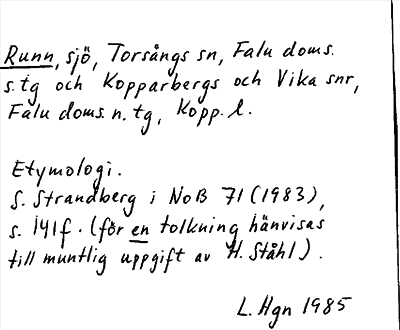 Runn, sjö, Torsångs sn, Falu doms.
s. tg och Kopparbergs och Vika snr,
Falu doms. n. tg, Kopp. l.
Etymologi.
S. Strandberg i NoB 71 (1983),
s. 141f. (för en tolkning hänvisas
till muntlig uppgift av H. Ståhl).
L. Hgn 1985